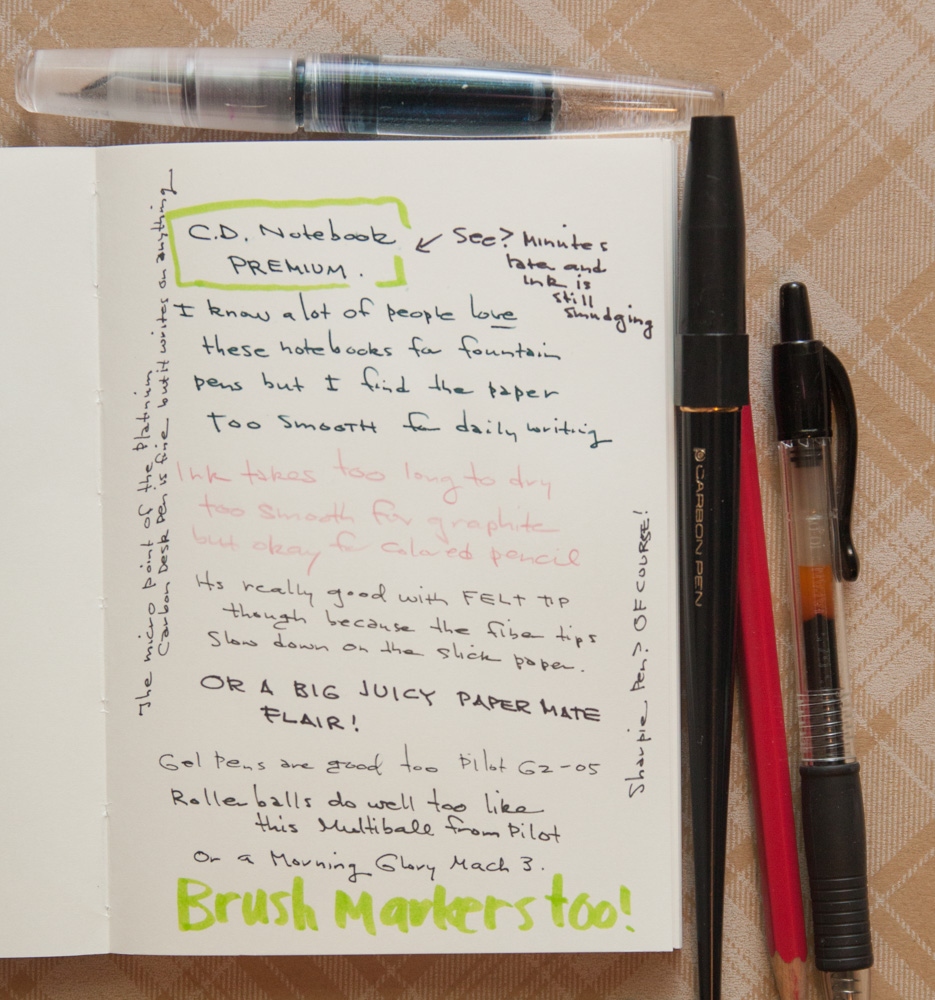 C.D. Notebook
PREMIUM.
See? Minutes
late and
ink is
still
smudging
I know a lot of people love
these notebooks for fountain
pens but I find the paper
too smooth for daily writing
Ink takes too long to dry
too smooth for graphite
but okay for colored pencil
Its really good with FELT TIP
though because the fiber tips
slow down on the slick paper.
OR A BIG JUICY PAPER MATE
FLAIR!
Gel Pens are good too Pilot G2-05
Rollerballs do well too like
this Multiball from Pilot
Or a Morning Glory Mach 3.
Brush Markers too!
The micro point of the Platinum
Carbon Desk Pen is fine but it writes on anything
Sharpie Pen? OF COURSE!
CARBON PEN